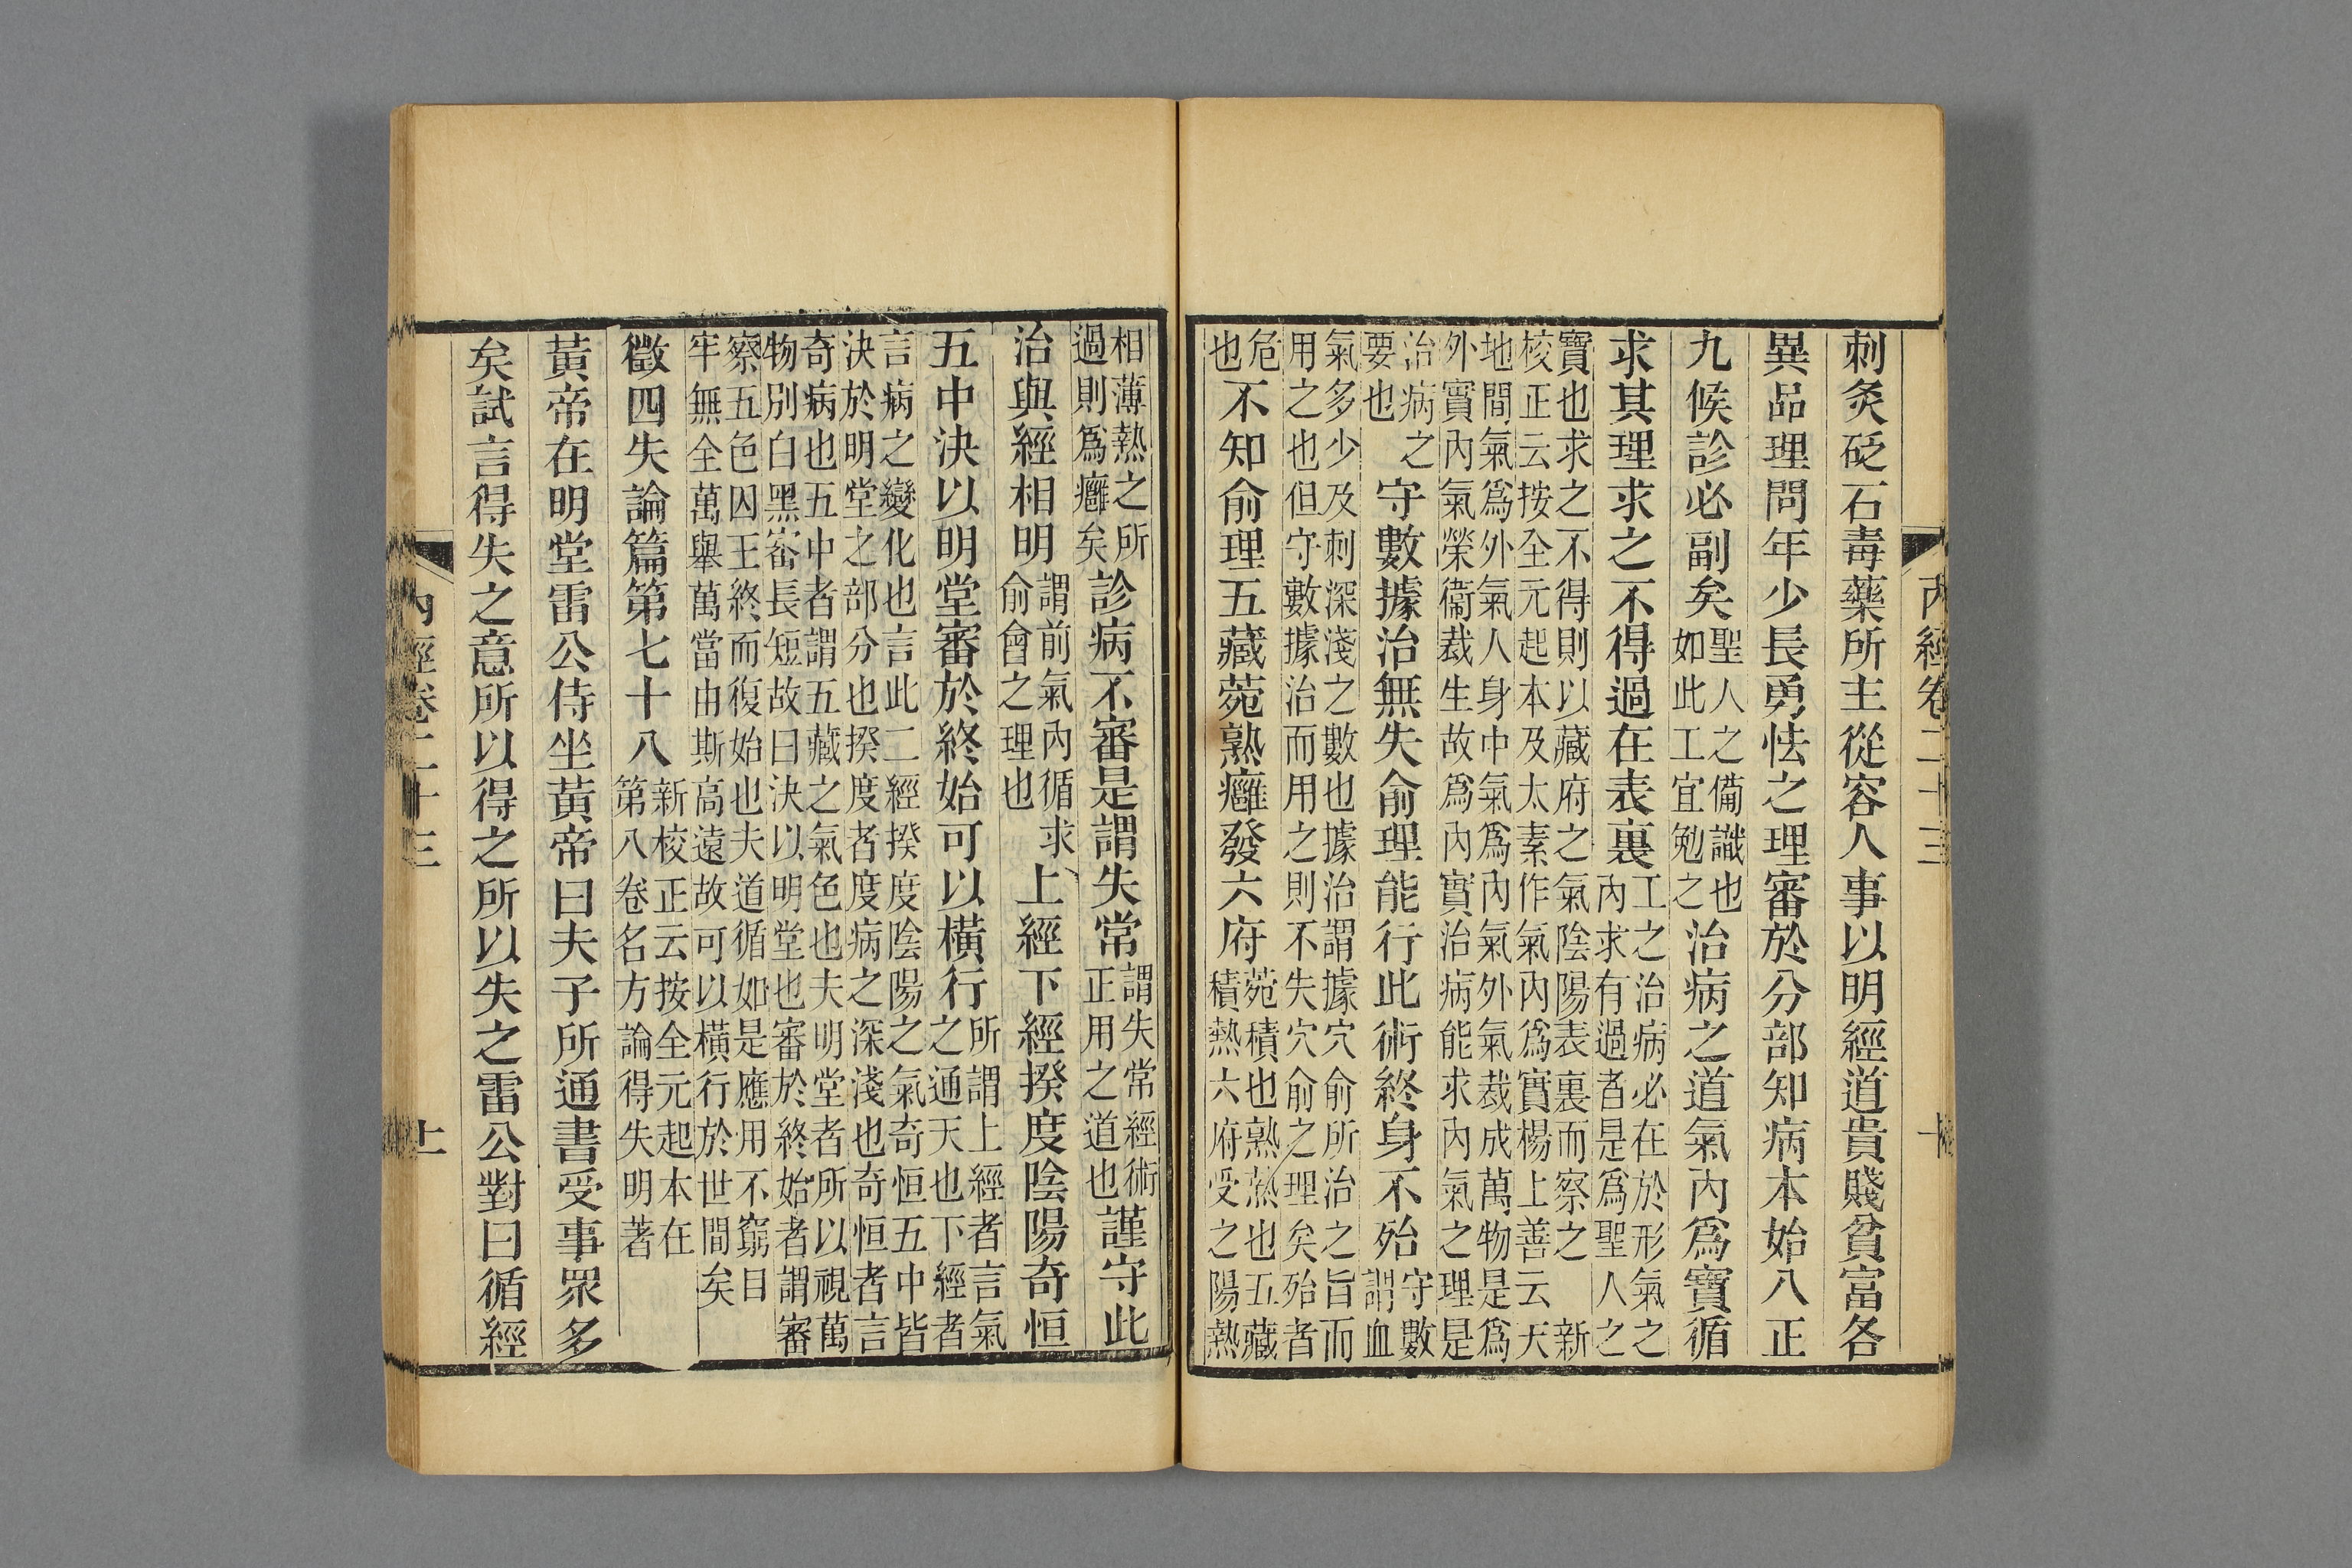 內經卷二十三 十
刺灸砭石毒藥所主從容人事以明經道貴賤貧富各
異品理問年少長勇怯之理審於分部知病本始八正
九候診必副矣聖人之備識也如此工宜勉之治病之道氣內爲寶循
求其理求之不得過在表裏工之治病必在於形氣之內求有過者是爲聖人之
寶也求之不得則以藏府之氣陰陽表裏而察之 新
校正云按全元起本及太素作氣內爲實楊上善云天
地間氣爲外氣人身中氣爲內氣外氣裁成萬物是爲
外實內氣榮衞裁生故爲內實治病能求內氣之理是
治病之要也守數據治無失俞理能行此術終身不殆守數謂血
氣多少及刺深淺之數也據治謂據穴俞所治之旨而
用之也但守數據治而用之則不失穴俞之理矣殆者
危也不知俞理五藏菀熟癰發六府菀積也熟蒸也五藏積熱六府受之陽熱
相薄熱之所過則爲癰矣診病不審是謂失常謂失常經術正用之道也謹守此
治與經相明謂前氣內循求俞會之理也上經下經揆度陰陽奇恒
五中決以明堂審於終始可以橫行所謂上經者言氣之通天也下經者
言病之變化也言此二經揆度陰陽之氣奇恒五中皆
決於明堂之部分也揆度者度病之深淺也奇恒者言
奇病也五中者謂五藏之氣色也夫明堂者所以視萬
物別白黑審長短故曰決以明堂也審於終始者謂審
察五色囚王終而復始也夫道循如是應用不窮目
牢無全萬舉萬當由斯高遠故可以橫行於世間矣
徵四失論篇第七十八新校正云按全元起本在第八卷名方論得失明著
黃帝在明堂雷公侍坐黃帝曰夫子所通書受事眾多
矣試言得失之意所以得之所以失之雷公對曰循經
內經卷二十三